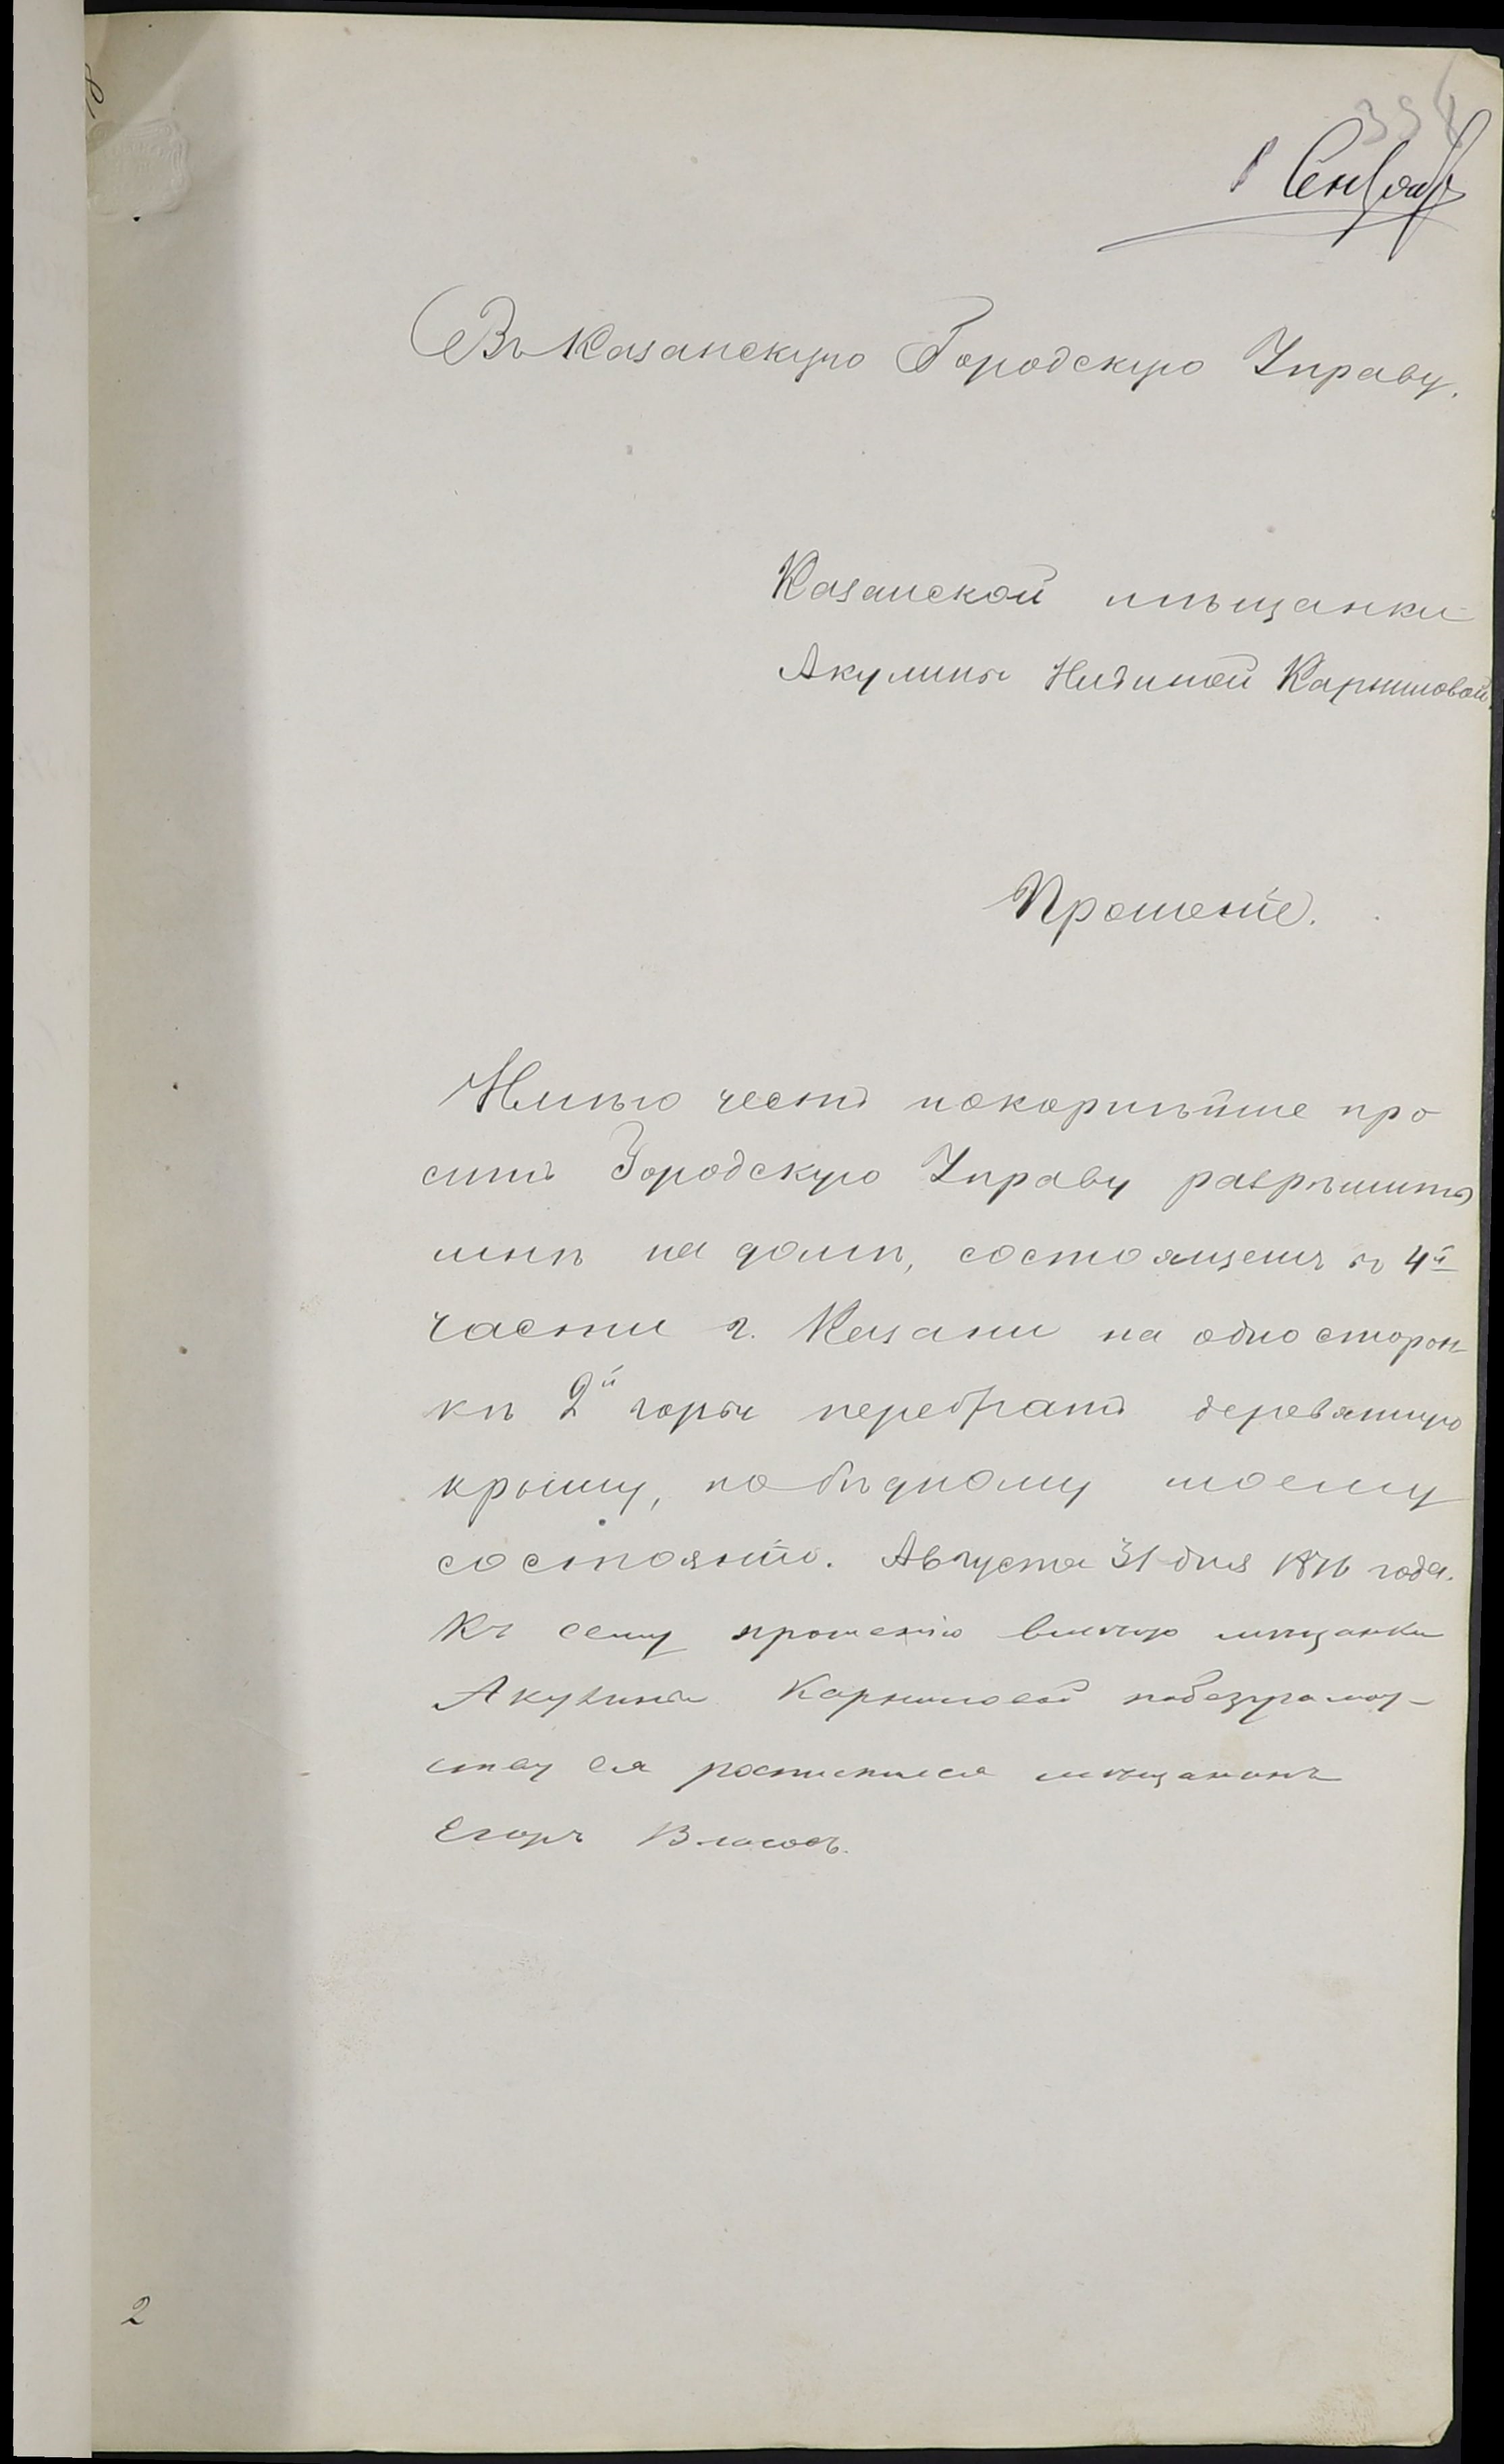 1 Сентяб
Въ Казанскую Городскую Управу.
Казанской мѣщанки
Акулины Каршиловой
Прошеніе.
Имѣю честь покорнѣйше про
сить Городскую Управу разрѣшить
мнѣ на домѣ, состоящемъ въ 4й
части г. Казани на одностороn
кѣ 2й горы перебрать деревянную
крышу, по бѣдному моему
состоянію. Августа 31 дня 1876 года.
Къ сему прошенію вмѣсто мѣщанки
Акулины Каршиловой по безграмот-
ству ея росписался мѣщанинъ
Егоръ Власовъ.
2